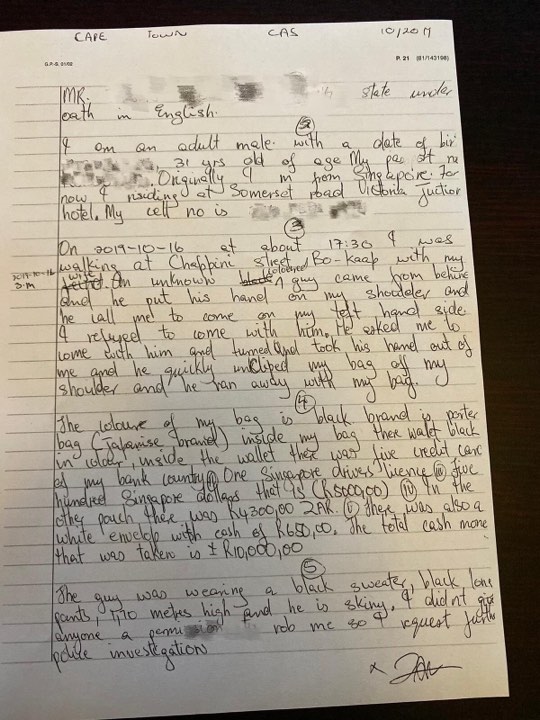 CAPE TOWN CAS 10/2019
G.P.-S. 01/02
P. 21 (81/143198)
MR. state under
oath in English.
②
I am an adult male with a date of bir
31 yrs old of age My pas
Originally I m from Singapore. For
now I residing at Somerset road Victoria Juctior
hotel. My cell no is
③
On 2019-10-16 at about 17:30 I was
walking at Chappini street, Bo-kaap with my
2019-10-16 wife coloured
An unknown guy came from behine
and he put his hand on my shoulder and
he call me to come on my left hand side.
I refused to come with him. He asked me to
come with him and turned and took his hand out of
me and he quickly unclibed my bag off my
shoulder and he ran away with my bag.
④
The coloure of my bag is black brand is porter
bag (Japanise brand) inside my bag there walet black
in colour, inside the wallet there was five credit care
of my bank country (ii) One Singapore drivers licence (iii) five
hundred Singapore dollars that is (R5000,00) (iv) In the
other pouch there was R4300,00 ZAR. (v) There was also a
white envelop with cash of R650,00. The total cash mone
that was taken is ± R10,000,00
⑤
The guy was wearing a black sweater, black lone
pants, 1,70 metres high and he is skiny. I didn't give
anyone a permi rob me so I request furthe
police investigation
x